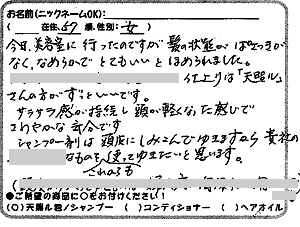 お名前(ニックネームOK):
( 在住、57歳、性別:女 )
今日、美容室に行ったのですが髪の状態がぱさつきが
なく、なめらかでとてもいいとほめられました。
仕上りは「天照ル」
さんの方がずっといいです。
サラサラ感が持続し頭が軽くなった感じで
さわやかな気分です
シャンプー剤は頭皮にしみこんでゆきますから貴社の
なものを使ってゆきたいと思います。
されるも
●ご希望の商品に○をお付けください!
(○)天照ル君ノシャンプー ( )コンディショナー ( )ヘアオイル